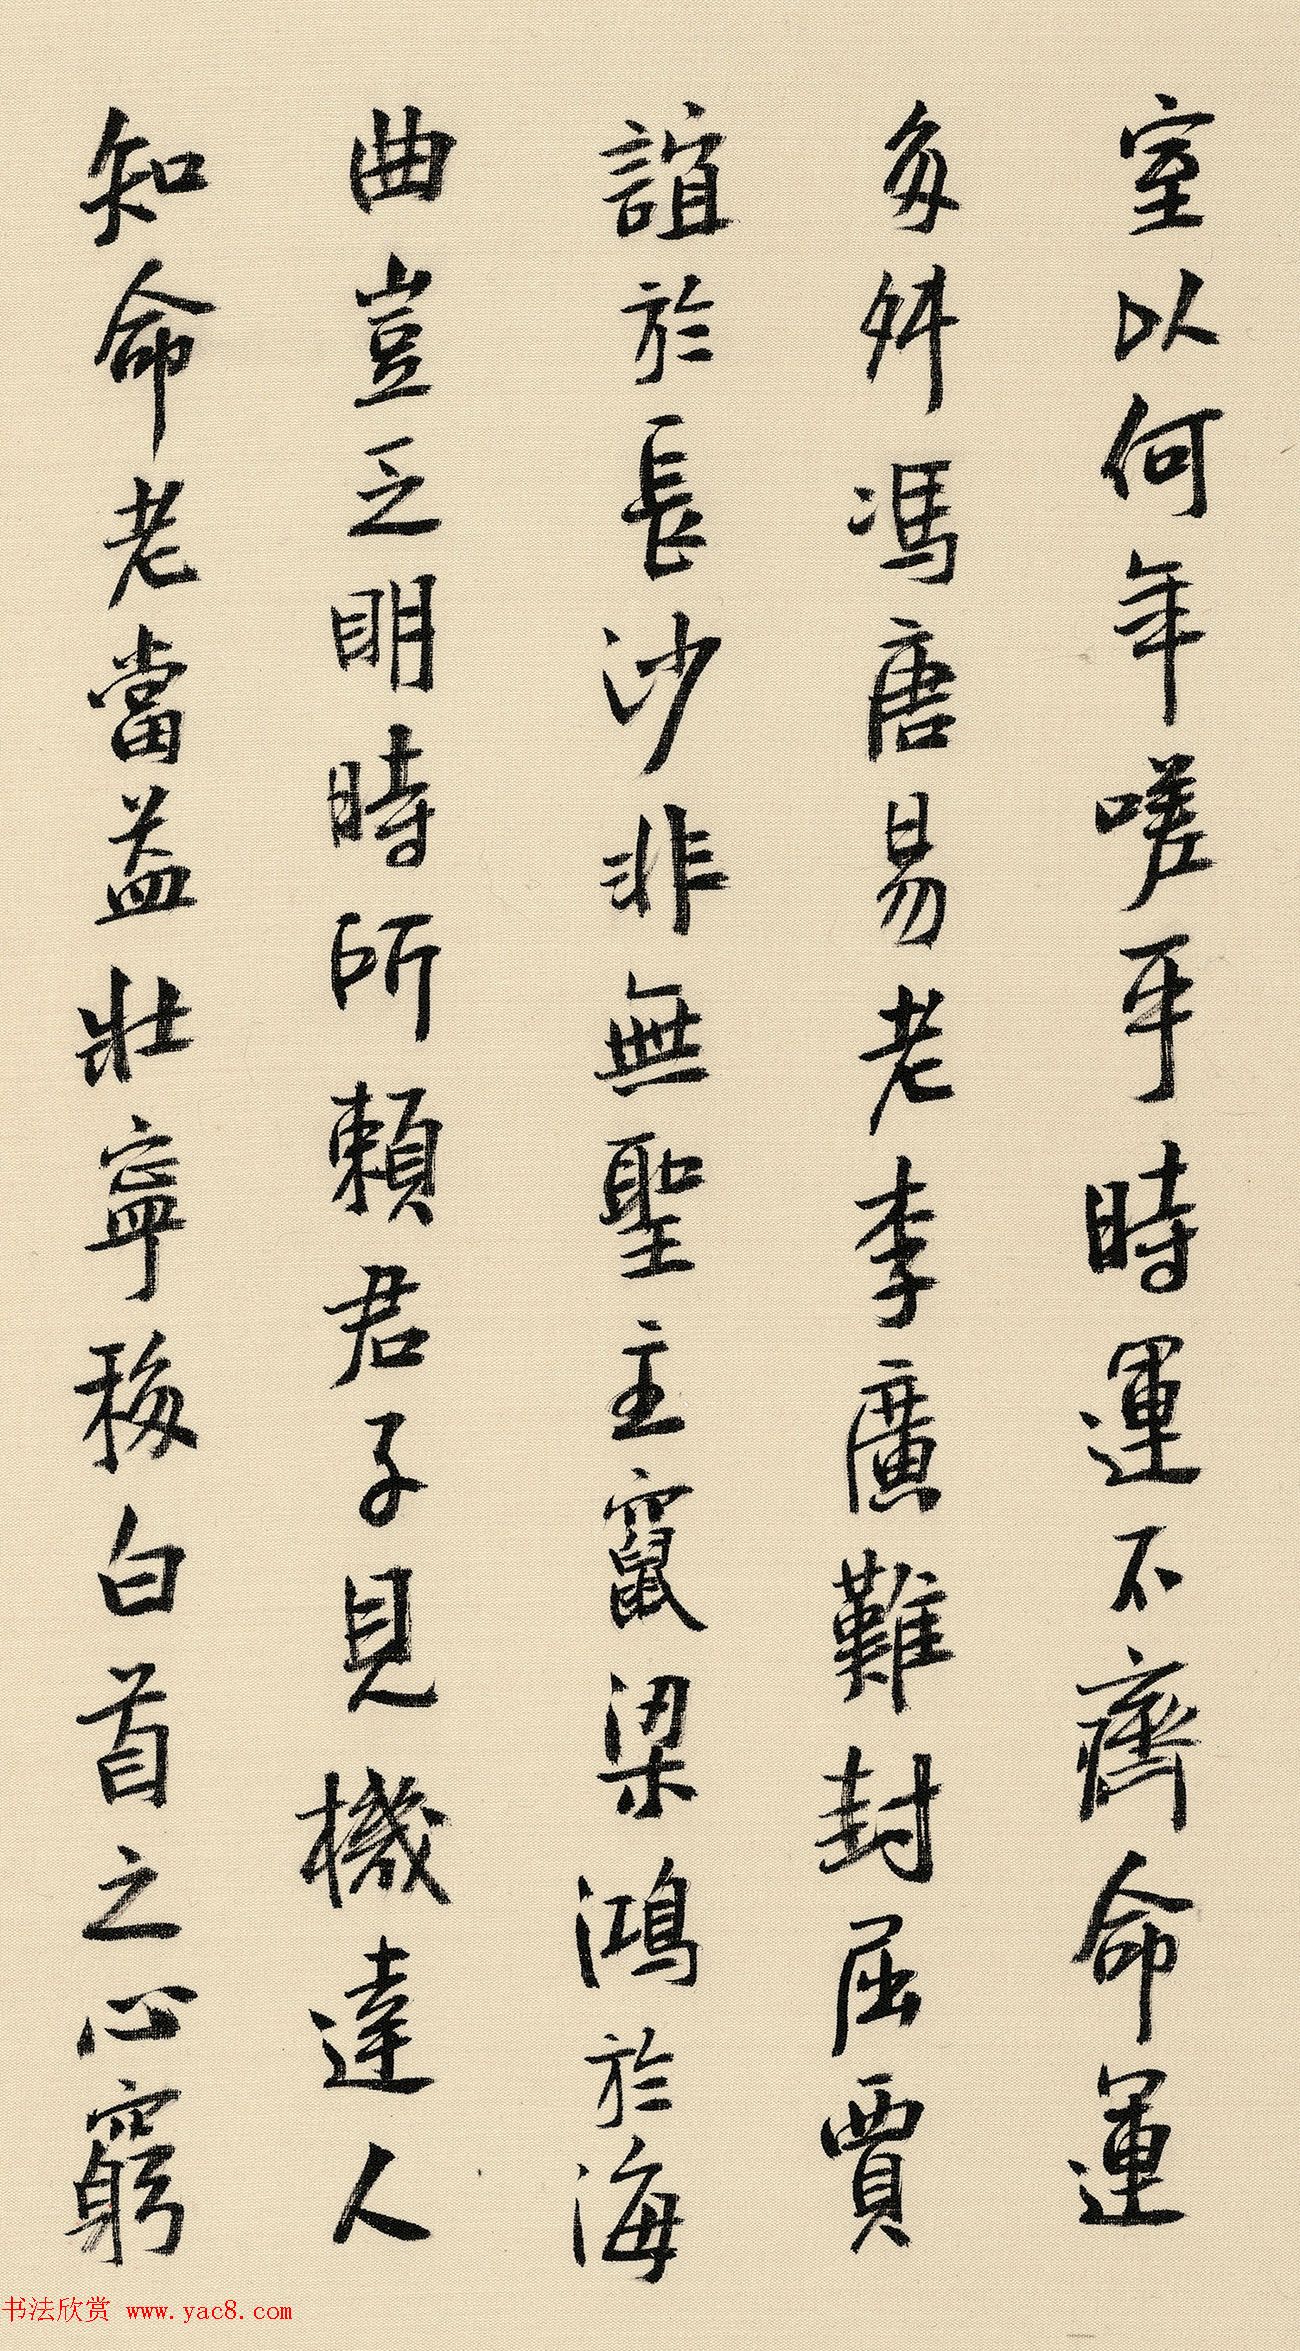 室以何年嗟乎時運不齊命運
多舛馮唐易老李廣難封屈賈
誼於長沙非無聖主竄梁鴻於海
曲豈乏明時所賴君子見機達人
知命老當益壯寧移白首之心窮
书法欣赏 www.yac8.com